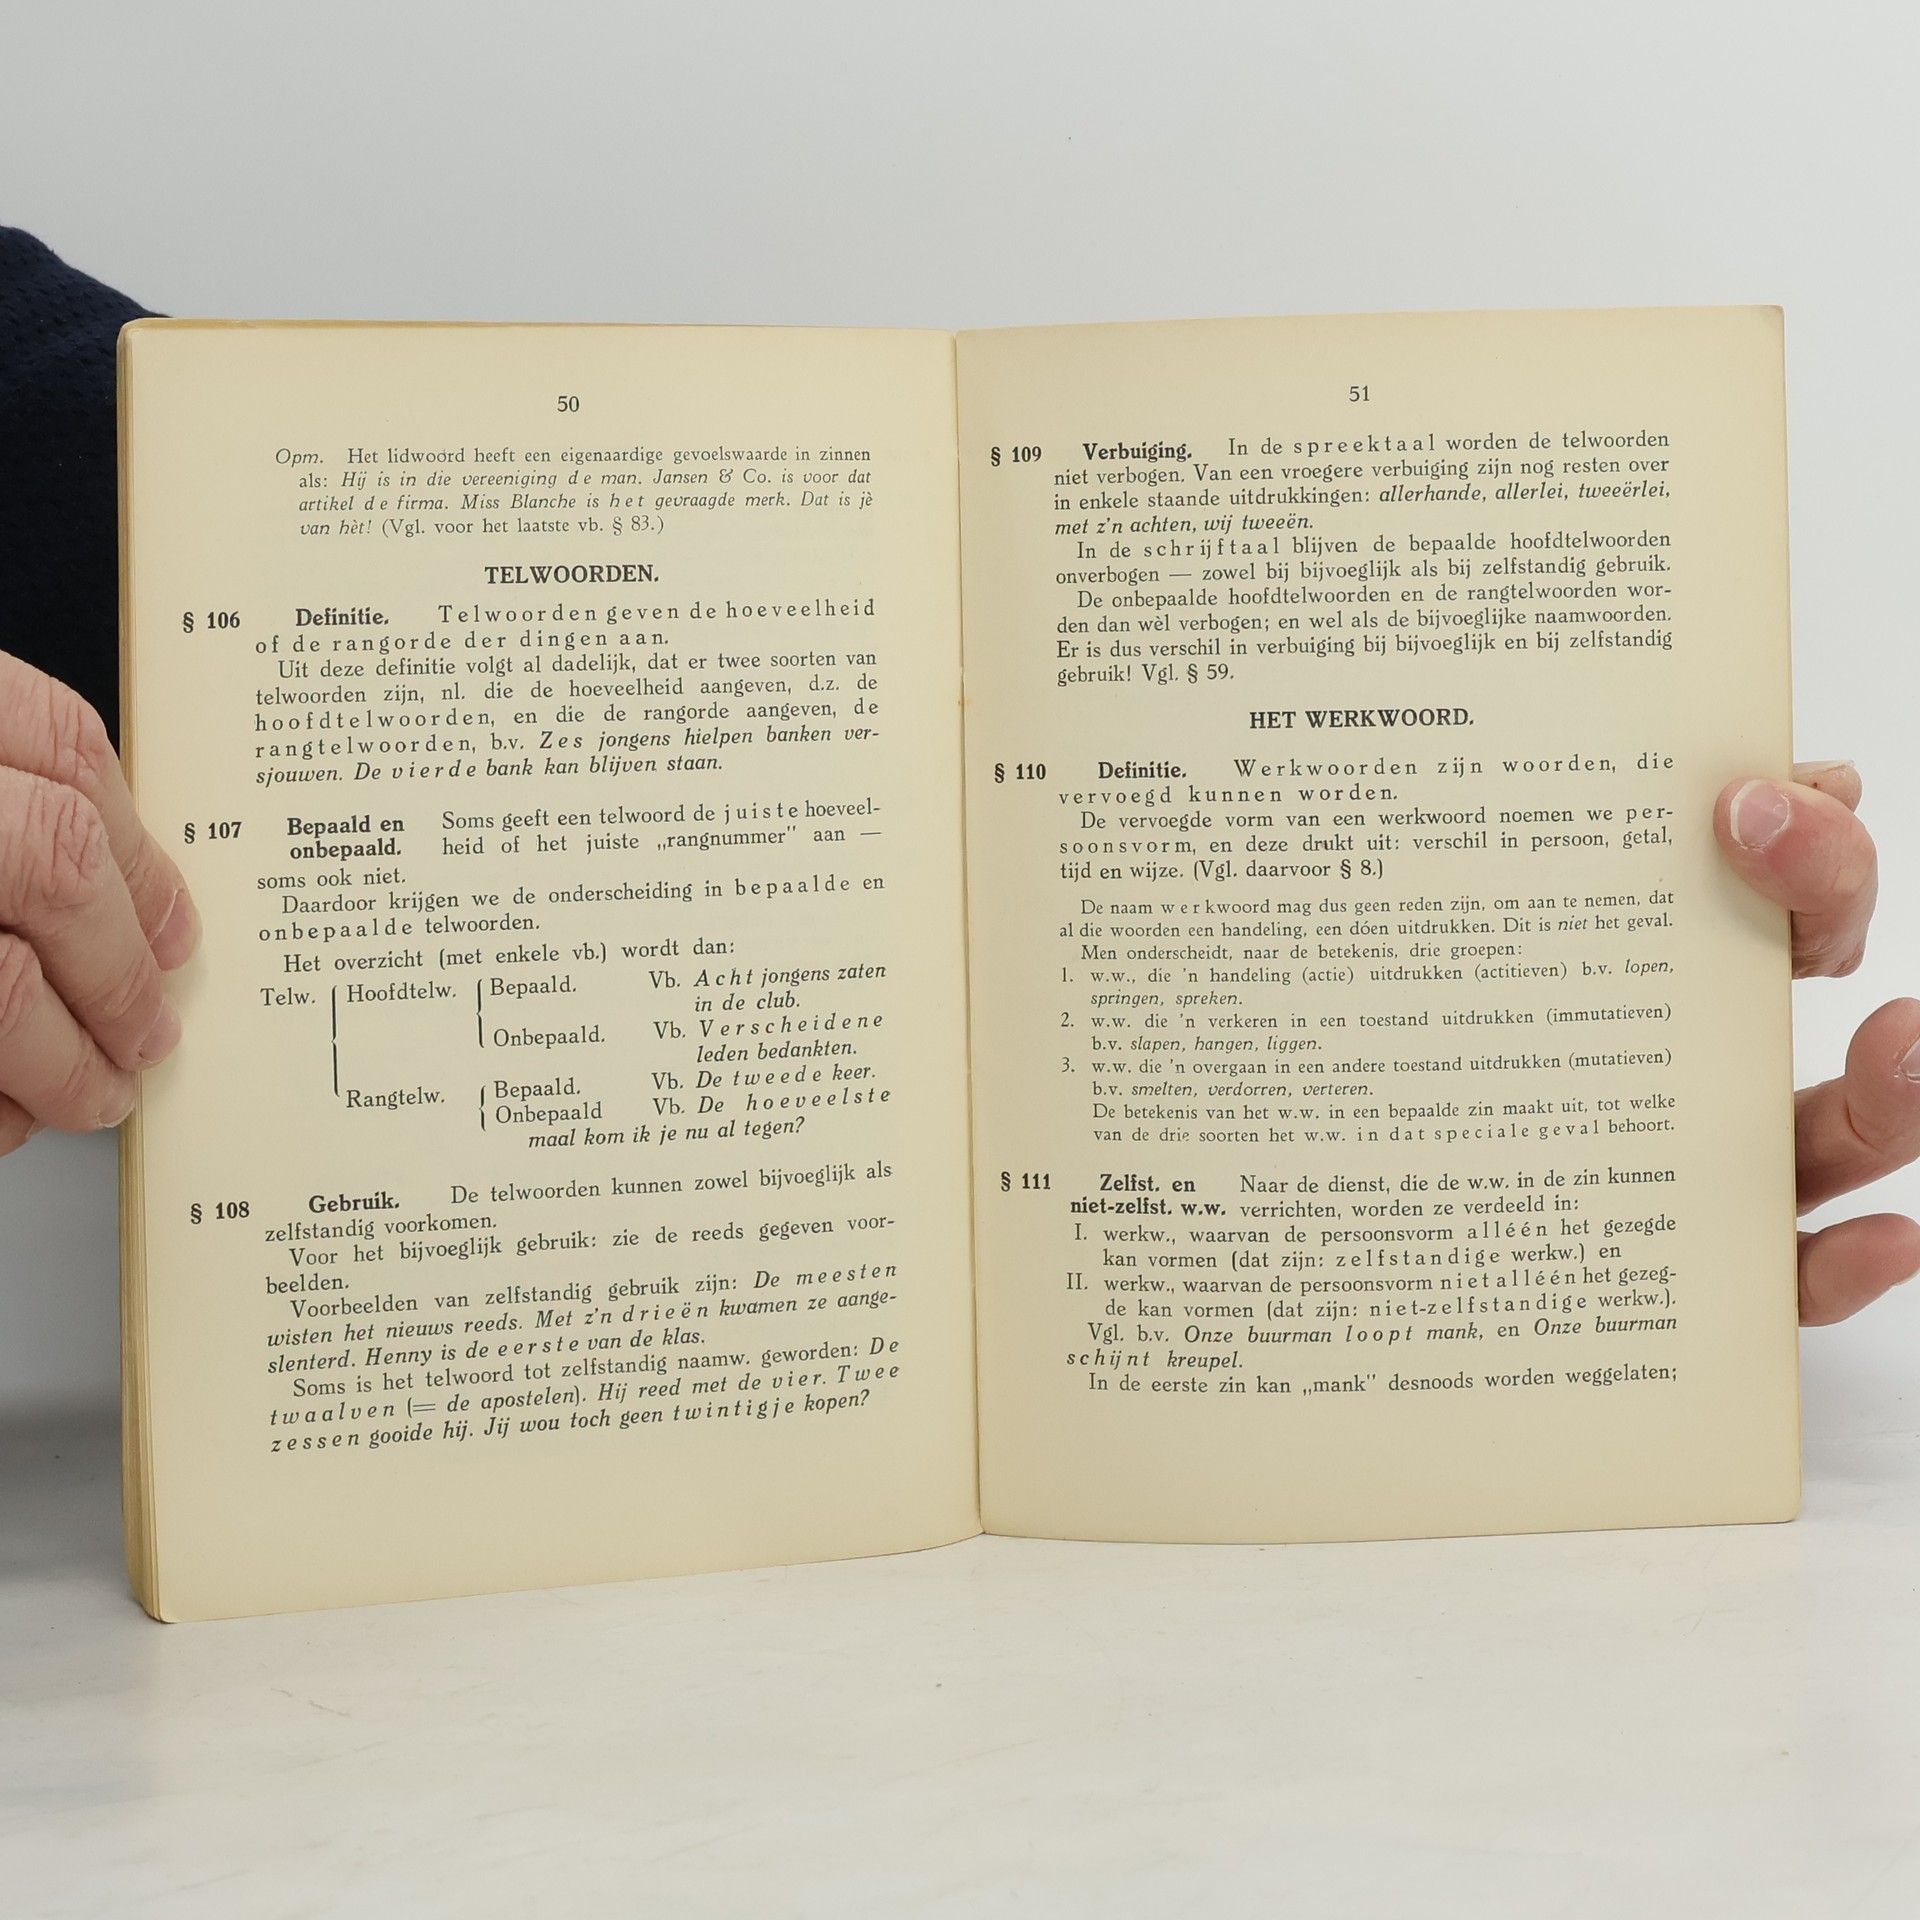 50
Opm. Het lidwoord heeft een eigenaardige gevoelswaarde in zinnen
als: Hij is in die vereeniging de man. Jansen & Co. is voor dat
artikel de firma. Miss Blanche is het gevraagde merk. Dat is jè
van hèt! (Vgl. voor het laatste vb. § 83.)
TELWOORDEN.
§ 106 Definitie. Telwoorden geven de hoeveelheid
of de rangorde der dingen aan.
Uit deze definitie volgt al dadelijk, dat er twee soorten van
telwoorden zijn, nl. die de hoeveelheid aangeven, d.z. de
hoofdtelwoorden, en die de rangorde aangeven, de
rangtelwoorden, b.v. Zes jongens hielpen banken ver-
sjouwen. De vierde bank kan blijven staan.
§ 107 Bepaald en Soms geeft een telwoord de juiste hoeveel-
onbepaald. heid of het juiste „rangnummer" aan —
soms ook niet.
Daardoor krijgen we de onderscheiding in bepaalde en
onbepaalde telwoorden.
Het overzicht (met enkele vb.) wordt dan:
Telw. Hoofdtelw. Bepaald. Vb. Acht jongens zaten
in de club.
Onbepaald. Vb. Verscheidene
leden bedankten.
Rangtelw. Bepaald. Vb. De tweede keer.
Onbepaald Vb. De hoeveelste
maal kom ik je nu al tegen?
§ 108 Gebruik. De telwoorden kunnen zowel bijvoeglijk als
zelfstandig voorkomen.
Voor het bijvoeglijk gebruik: zie de reeds gegeven voor-
beelden.
Voorbeelden van zelfstandig gebruik zijn: De meesten
wisten het nieuws reeds. Met z'n drieën kwamen ze aange-
slenterd. Henny is de eerste van de klas.
Soms is het telwoord tot zelfstandig naamw. geworden: De
twaalven (= de apostelen). Hij reed met de vier. Twee
zessen gooide hij. Jij wou toch geen twintigje kopen?
51
§ 109 Verbuiging. In de spreektaal worden de telwoorden
niet verbogen. Van een vroegere verbuiging zijn nog resten over
in enkele staande uitdrukkingen: allerhande, allerlei, tweeërlei,
met z'n achten, wij tweeën.
In de schrijftaal blijven de bepaalde hoofdtelwoorden
onverbogen — zowel bij bijvoeglijk als bij zelfstandig gebruik.
De onbepaalde hoofdtelwoorden en de rangtelwoorden wor-
den dan wèl verbogen; en wel als de bijvoeglijke naamwoorden.
Er is dus verschil in verbuiging bij bijvoeglijk en bij zelfstandig
gebruik! Vgl. § 59.
HET WERKWOORD.
§ 110 Definitie. Werkwoorden zijn woorden, die
vervoegd kunnen worden.
De vervoegde vorm van een werkwoord noemen we per-
soonsvorm, en deze drukt uit: verschil in persoon, getal,
tijd en wijze. (Vgl. daarvoor § 8.)
De naam werkwoord mag dus geen reden zijn, om aan te nemen, dat
al die woorden een handeling, een dóen uitdrukken. Dit is niet het geval.
Men onderscheidt, naar de betekenis, drie groepen:
1. w.w., die 'n handeling (actie) uitdrukken (actitieven) b.v. lopen,
springen, spreken.
2. w.w. die 'n verkeren in een toestand uitdrukken (immutatieven)
b.v. slapen, hangen, liggen.
3. w.w. die 'n overgaan in een andere toestand uitdrukken (mutatieven)
b.v. smelten, verdorren, verteren.
De betekenis van het w.w. in een bepaalde zin maakt uit, tot welke
van de drie soorten het w.w. in dat speciale geval behoort.
§ 111 Zelfst. en Naar de dienst, die de w.w. in de zin kunnen
niet-zelfst. w.w. verrichten, worden ze verdeeld in:
I. werkw., waarvan de persoonsvorm alléén het gezegde
kan vormen (dat zijn: zelfstandige werkw.) en
II. werkw., waarvan de persoonsvorm niet alléén het gezeg-
de kan vormen (dat zijn: niet-zelfstandige werkw.).
Vgl. b.v. Onze buurman loopt mank, en Onze buurman
schijnt kreupel.
In de eerste zin kan „mank" desnoods worden weggelaten;